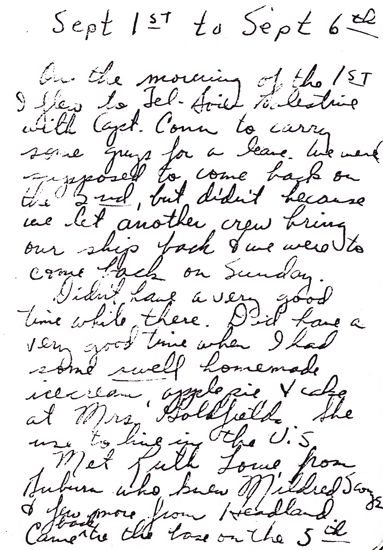 Sept 1ST to Sept 6th
On the morning of the 1ST
I flew to Tel-Aviv Palestine
with Capt. Conn to carry
some guys for a leave. We were
supposed to come back on
the 2nd, but didn't because
we let another crew bring
our ship back & we were to
come back on Sunday.
Didn't have a very good
time while there. Did have a
very good time when I had
some swell homemade
icecream, applepie & cake
at Mrs. Goldfields. She
use to live in the U.S
Met Ruth Lowe from
Auburn who knew Mildred
& few more from Headland
Came back to the base on the 5th